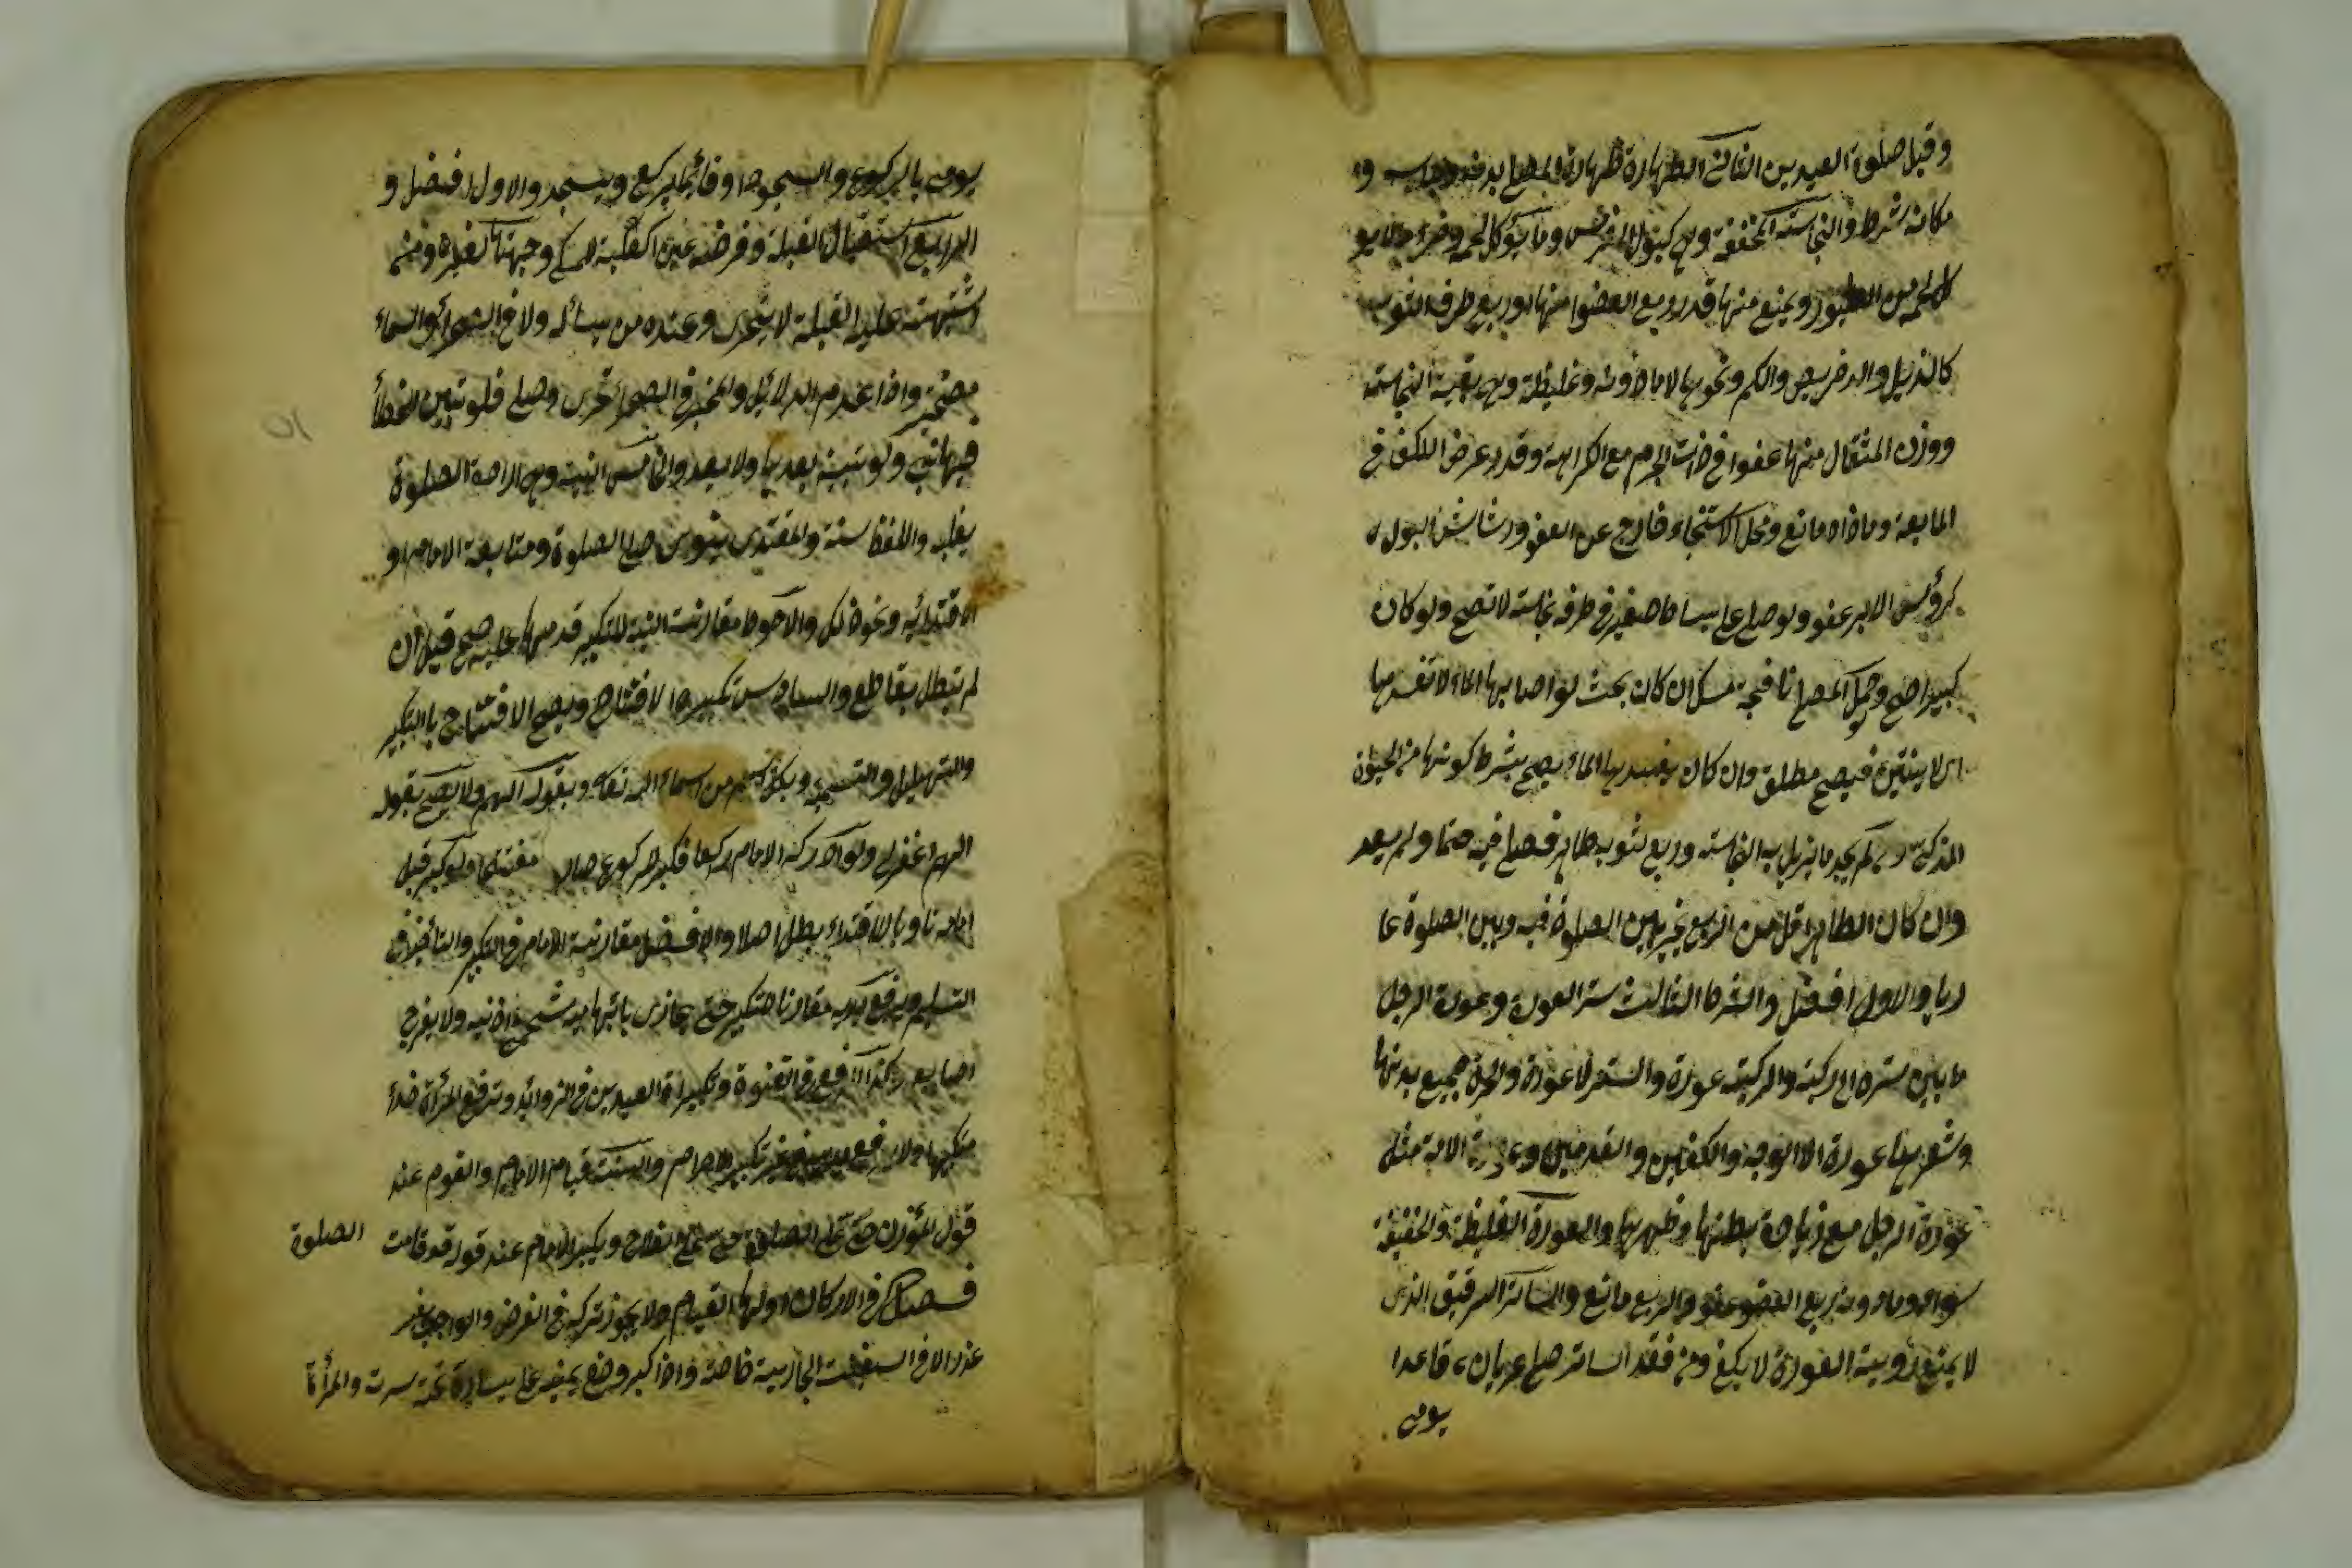 وقبل صلوة العيدين الثاني الطهارة طهارة المصلي بدنه وثوبه و
مكانه شرط والنجاسة المخففة وهي كبول الفرس وما يؤكل لحمه وخرء ما لا يؤ
كل لحمه من الطيور ويمنع منها قدر ربع العضو منها او ربع طرف الثوب
كالذيل والدخريص والكم ونحوها لا ما دونه وغليظة وهي بقية النجاسة
ووزن المثقال منها عفو في ذات الجرم مع الكراهة وقدر عرض الكف في
المايعة وما زاد مانع ومحل الاستنجاء خارج عن العفو ورشاش البول
كرؤس الابر عفو ولو صلى على بساط صغير في طرفه نجاسة لا تصح ولو كان
كبيرا صح وحمل المصلي نافجة مسك ان كان بحيث لو اصابها الماء لا تفسد بها
اي لا ينتن فيصح مطلق وان كان يفسد بها الماء يصح بشرط كونها من الحيوة
المذكى ولم يجد ما يزيل به النجاسة وربع ثوبه طاهر فصلى فيه حتما ولم يعد
وان كان الطاهر اقل من الربع يخير بين الصلوة فيه وبين الصلوة عا
ريا والاول افضل والشرط الثالث ستر العورة وعورة الرجل
ما بين سترة الى ركبته والركبته عورة والستر لا عورة والحرة جميع بدنها
وشعرها عورة الا الوجه والكفين والقدمين وعورة الامة مثل
عورة الرجل مع زيادة بطنها وظهرها والعورة الغليظة والخفيفة
سواء وما دون ربع العضو عفو والربع مانع والساتر الرقيق الذي
لا يمنع رؤية العورة لا يكفي ومن فقد الساتر صلى عريان قاعدا
يومي
يومي بالركوع والسجود او قائما يركع ويسجد والاول افضل و
الرابع استقبال القبلة وفرضه عين الكعبة للمكي وجهتها لغيره ومن
اشتبهت عليه القبلة لا يتحرى وعنده من يسأله ولا في الصحراء والسماء
مصحية واذا عدم الدلائل والمخبر في الصحراء تحرى وصلى فلو تبين الخطأ
فيها بني ولو تبينه بعدها ولا يعد والخامس النية وهي ارادة الصلوة
بقلبه واللفظ سنة والمقتدي ينوي اصل الصلوة ومتابعة الامام او
الاقتداء به ونحو ذلك والاحوط مقارنة النية للتكبير قدمها عليه صح قبل ان
لم تبطل بقاطع والسادس تكبيرة الافتتاح ويصح الافتتاح بالتكبير
والتهليل والتسبيح وبكل اسم من اسماء الله تعالى وبقوله اللهم ولا يصح بقوله
اللهم اغفر لي ولو ادركه الامام راكعا فكبر للركوع صار مفتتحا ولو كبر قبل
امامه ناويا الاقتداء بطل اصلا والافضل مقارنة الامام في التكبير والتاخير في
التسليم ويرفع يديه مقارنا للتكبير حتى يحاذي بابهاميه شحمة اذنيه ولا يفرج
اصابعه وكذا الرفع في القنوة وتكبيراة العيدين في الزوائد وترفع المرأة حذاء
منكبيها ولا يرفع يديه في غير تكبير الاحرام والسنة قيام الامام والقوم عند
قول المؤذن حي على الصلوة حي على الفلاح ويكبر الامام عند قوله قد قامت الصلوة
فصل في الاركان اولها القيام ولا يجوز تركه في الفرض والواجب بغير
عذر الا في السفينة الجارية خاصة واذا كبر وضع يمينه على يساره تحت سرته والمرأة